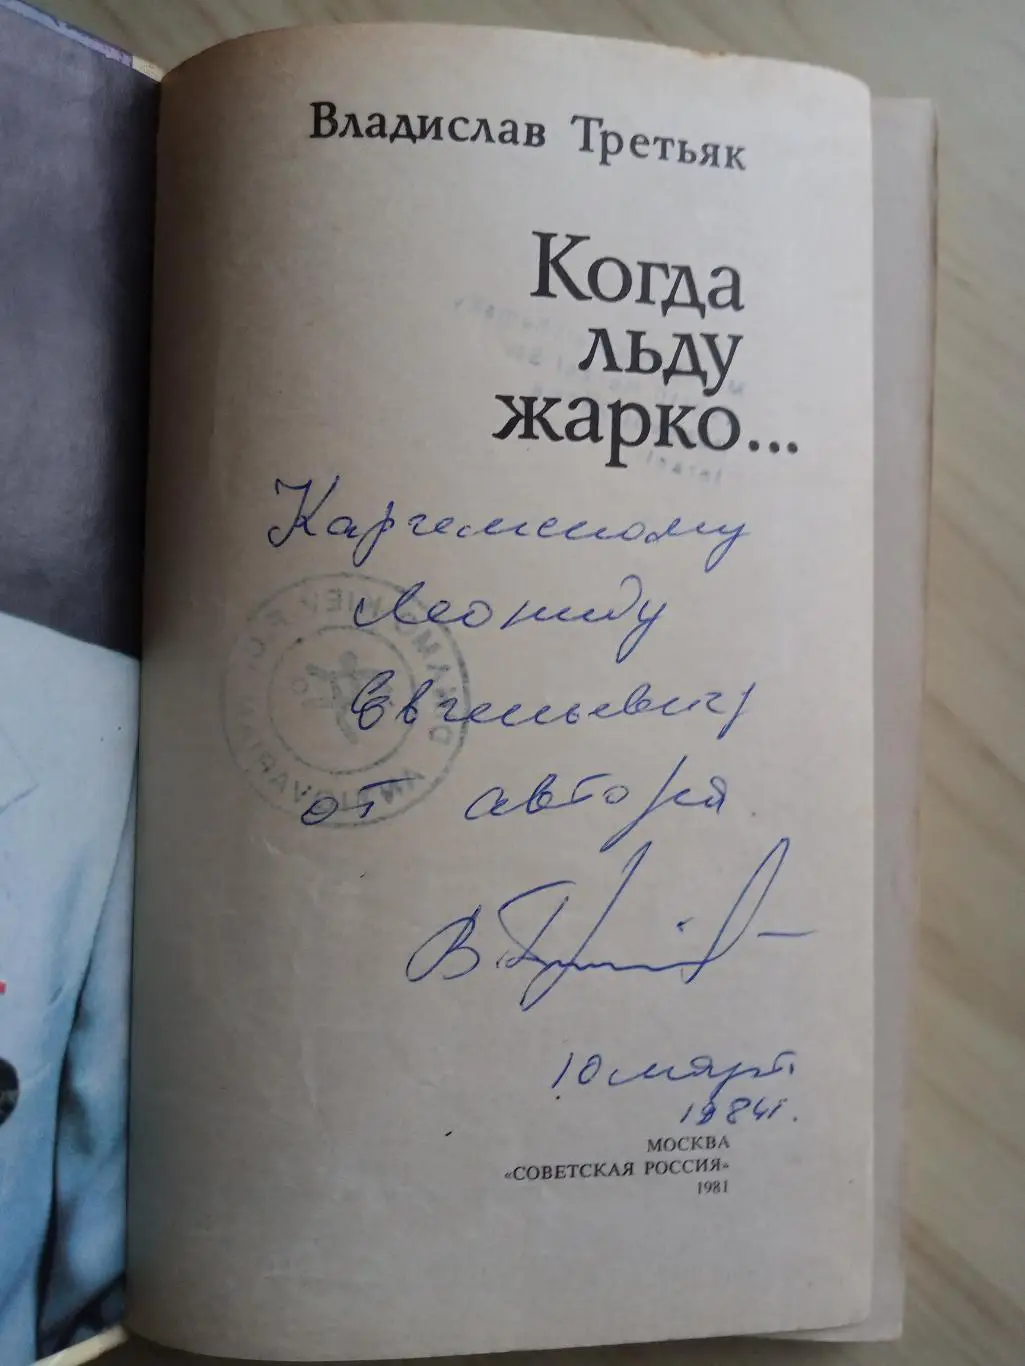 Владислав Третьяк
Когда
льду
жарко...
Леониду
Евгеньевичу
от автора
В. Третьяк
10 март.
1984г.
МОСКВА
«СОВЕТСКАЯ РОССИЯ»
1981